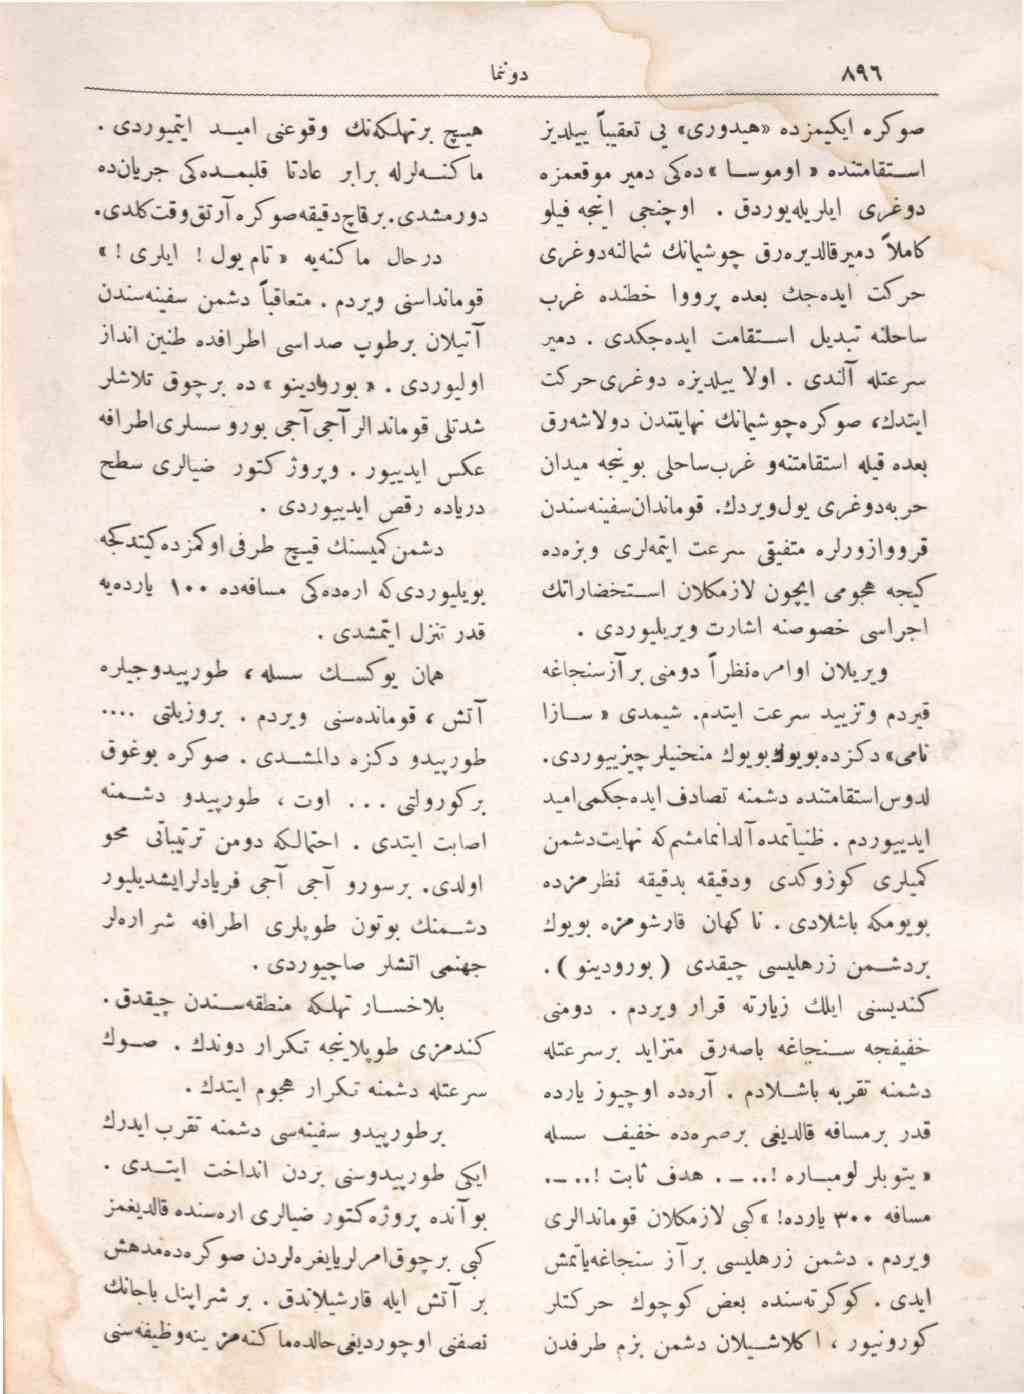 ٨٩٦
دوننما
صوكره ايكيمزده «هيدورى» يى تعقيباً ييلديز
استقامتنده «اوموسا» ده‌كى دمير موقعمزه
دوغرى ايلريله‌يوردق . اوچنجى اينجه فيلو
كاملاً دمير قالديره‌رق چوشيمانك شمالنه دوغرى
حركت ايده‌جك بعده پرووا خطنده غرب
ساحلنه تبديل استقامت ايده‌جكدى . دمير
سرعتله آلندى . اولا ييلديزه دوغرى حركت
ايتدك، صوكره چوشيمانك نهايتندن دولاشه‌رق
بعده قبله استقامتنه و غرب ساحلى بوينجه ميدان
حربه دوغرى يول ويردك. قوماندان سفينه‌سندن
قرووازورلره متفيقى سرعت ايتمه‌لرى وبزه‌ده
كيجه هجومى ايچون لازمكلان استحضاراتك
اجراسى خصوصنه اشارت ويريليوردى .
ويريلان اوامره نظراً دومنى بر آز سنجاغه
قيردم وتزييد سرعت ايتدم. شيمدى « سازا
نامى» دكزده بويوك بويوك منحنيلر چيزييوردى.
لدوس استقامتنده دشمنه تصادف ايده‌جكمى اميد
ايدييوردم . ظنياتمده آلدانمامشم كه نهايت دشمن
كميلرى كوزوكدى ودقيقه بدقيقه نظرمزده
بويومكه باشلادى . نا كهان قارشومزه بويوك
بردشمن زرهليسى چيقدى ( بورودينو ).
كنديسنى ايلك زيارته قرار ويردم . دومنى
خفيفجه سنجاغه باصه‌رق متزايد برسرعتله
دشمنه تقربه باشلادم . آره‌ده اوچيوز يارده
قدر برمسافه قالديغى برصره‌ده خفيف سسله
« يتوبلر لومباره !.. ــ. هدف ثابت !.. ــ.
مسافه ٣٠٠ يارده! » كبى لازمكلان قوماندالرى
ويردم . دشمن زرهليسى بر آز سنجاغه ياتمش
ايدى . كوكرته‌سنده بعض كوچوك حركتلر
كورونيور ، ا كلاشيلان دشمن بزم طرفدن
هيچ برتهلكه‌نك وقوعنى اميد ايتميوردى .
ماكنه‌لرله برابر عادتا قلبمده‌كى جريان‌ده
دورمشدى. برقاچ دقيقه صوكره آرتق وقت كلدى.
درحال ماكنه‌يه « تام يول ! ايلرى ! »
قومانداسنى ويردم . متعاقباً دشمن سفينه‌سندن
آتيلان برطوپ صداسى اطرافده طنين انداز
اوليوردى . « بورودينو » ده برچوق تلاشلر
شدتلى قوماندالر آجى آجى بورو سسلرى اطرافه
عكس ايدييور . وپروژكتور ضيالرى سطح
درياده رقص ايدييوردى .
دشمن كميسنك قيچ طرفى اوكمزده كيتدكجه
بويليوردى كه اره‌ده‌كى مسافه‌ده ١٠٠ يارده‌يه
قدر تنزل ايتمشدى .
همان يوكسك سسله ، طورپيدوجيلره
آتش ، قومانده‌سنى ويردم . بروزيلتى ....
طورپيدو دكزه دالمشدى . صوكره بوغوق
بركورولتى ... اوت ، طورپيدو دشمنه
اصابت ايتدى . احتمالكه دومن ترتيباتى محو
اولدى. برسورو آجى آجى فريادلر ايشديليور
دشمنك بوتون طوپلرى اطرافه شراره‌لر
جهنمى اتشلر صاچيوردى .
بلاخسار تهلكه منطقه‌سندن چيقدق.
كندمزى طوپلاينجه تكرار دوندك . صوك
سرعتله دشمنه تكرار هجوم ايتدك .
برطورپيدو سفينه‌سى دشمنه تقرب ايدرك
ايكى طورپيدوسنى بردن انداخت ايتدى .
بوآنده پروژه‌كتور ضيالرى اره‌سنده قالديغمز
كبى برچوق امرلر يايغره‌لردن صوكره‌ده مدهش
بر آتش ايله قارشيلاندق . بر شراپنل باجانك
نصفنى اوچورديغى حالده ماكنه‌مز ينه وظيفه‌سنى